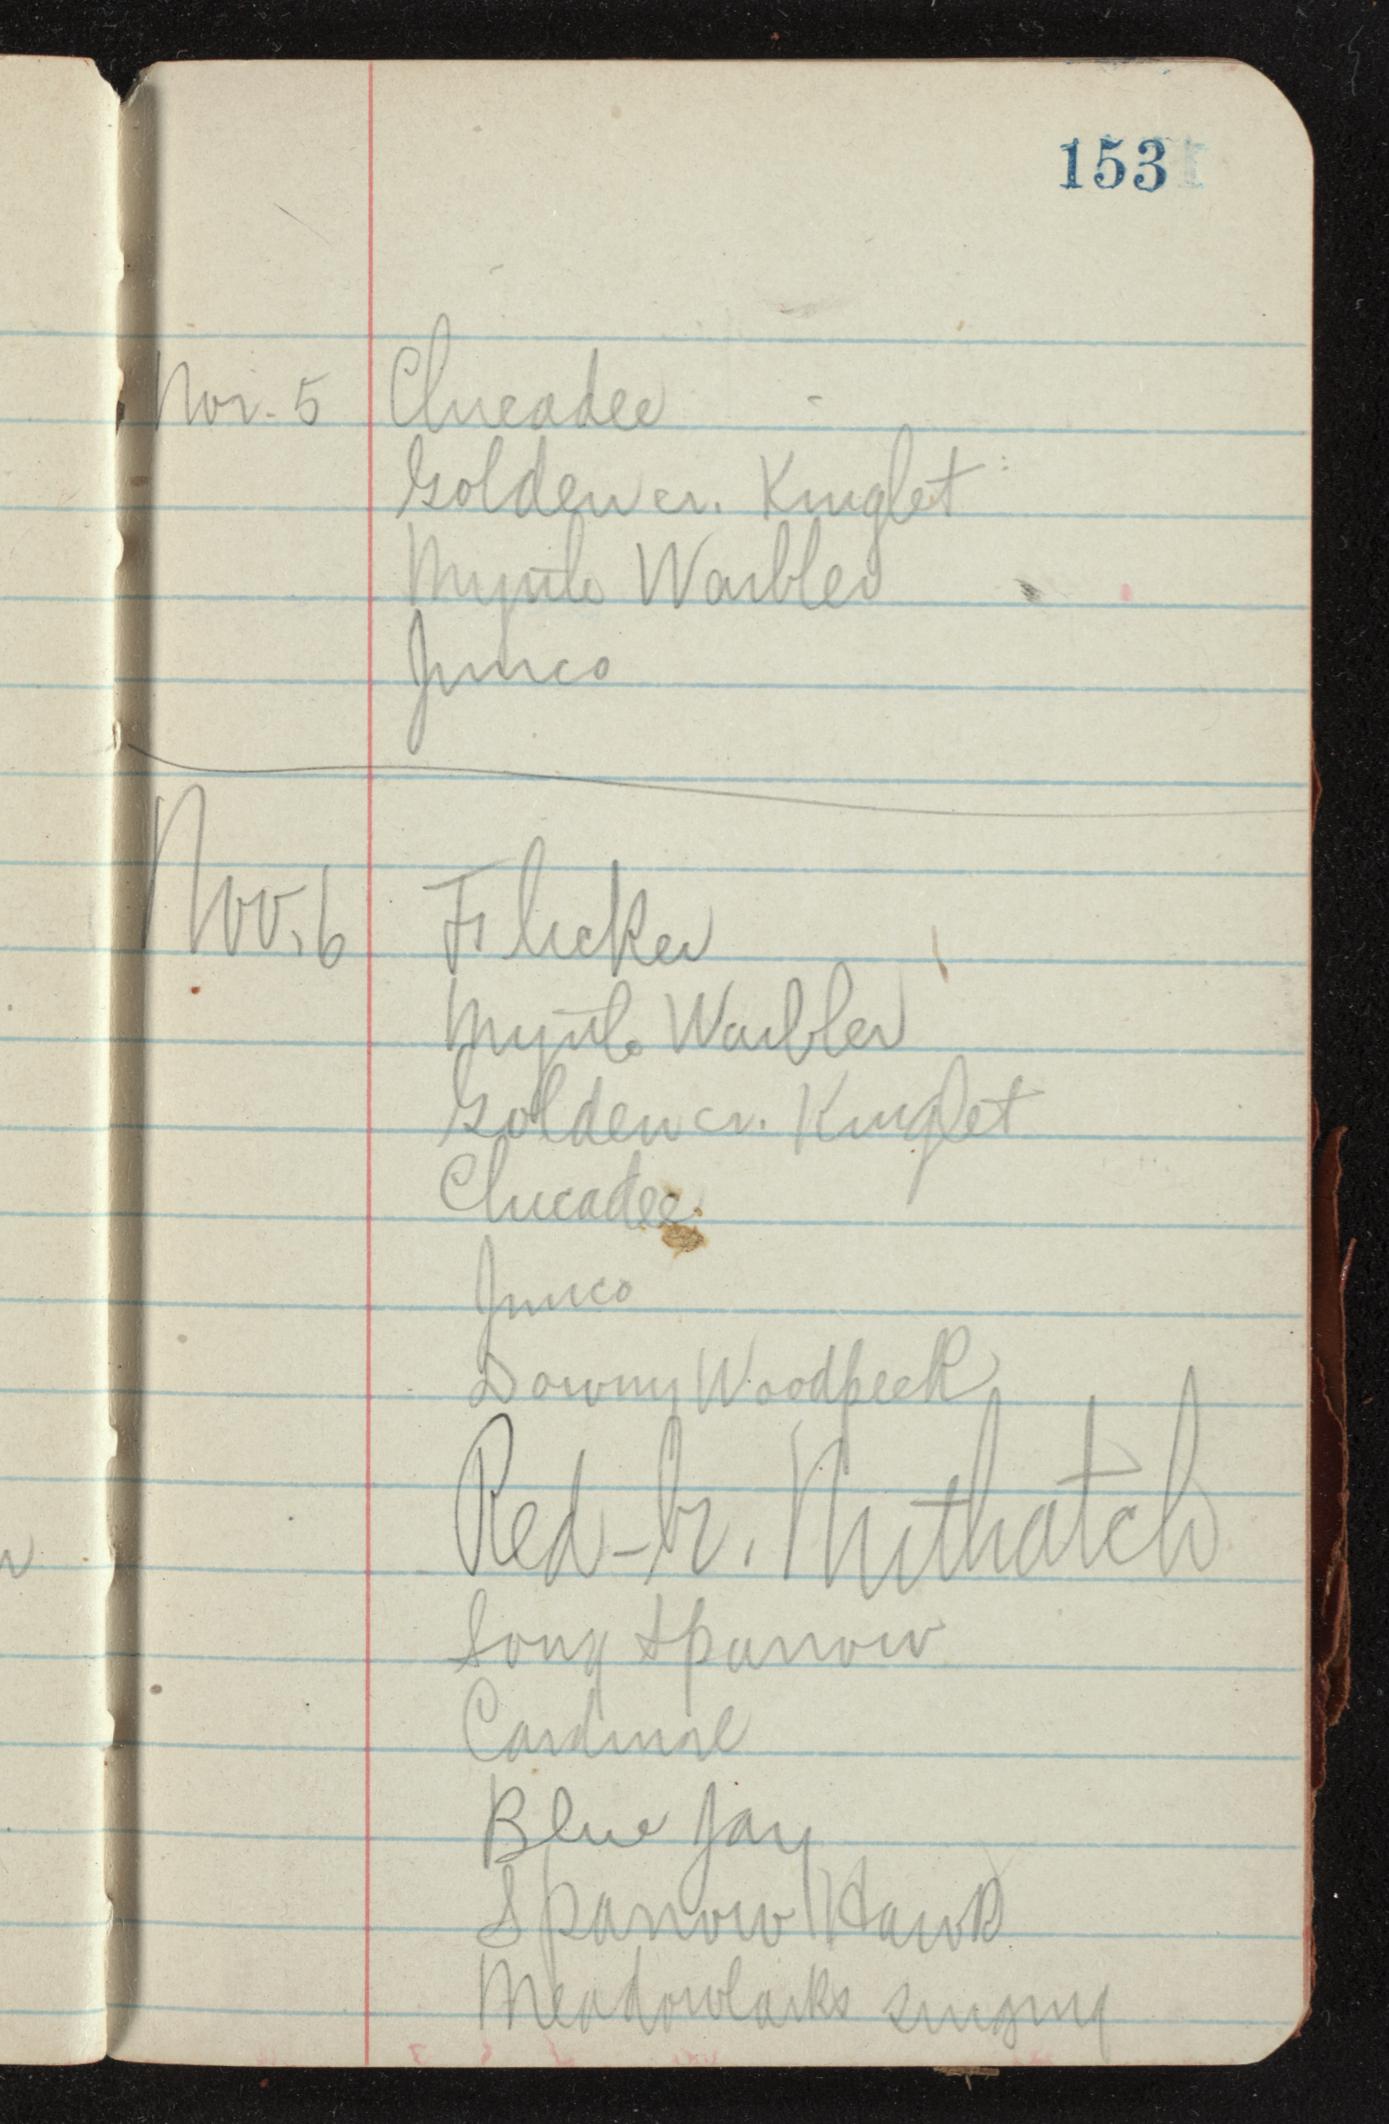 153
Nov. 5 Chicadee
Golden cr. Kinglet
Myrtle Warbler
Junco
Nov. 6 Flicker
Myrtle Warbler
Golden cr. Kinglet
Chicadee
Junco
Downy Woodpeck
Red-br. Nuthatch
Song Sparrow
Cardinal
Blue Jay
Sparrow Hawk
Meadowlarks singing